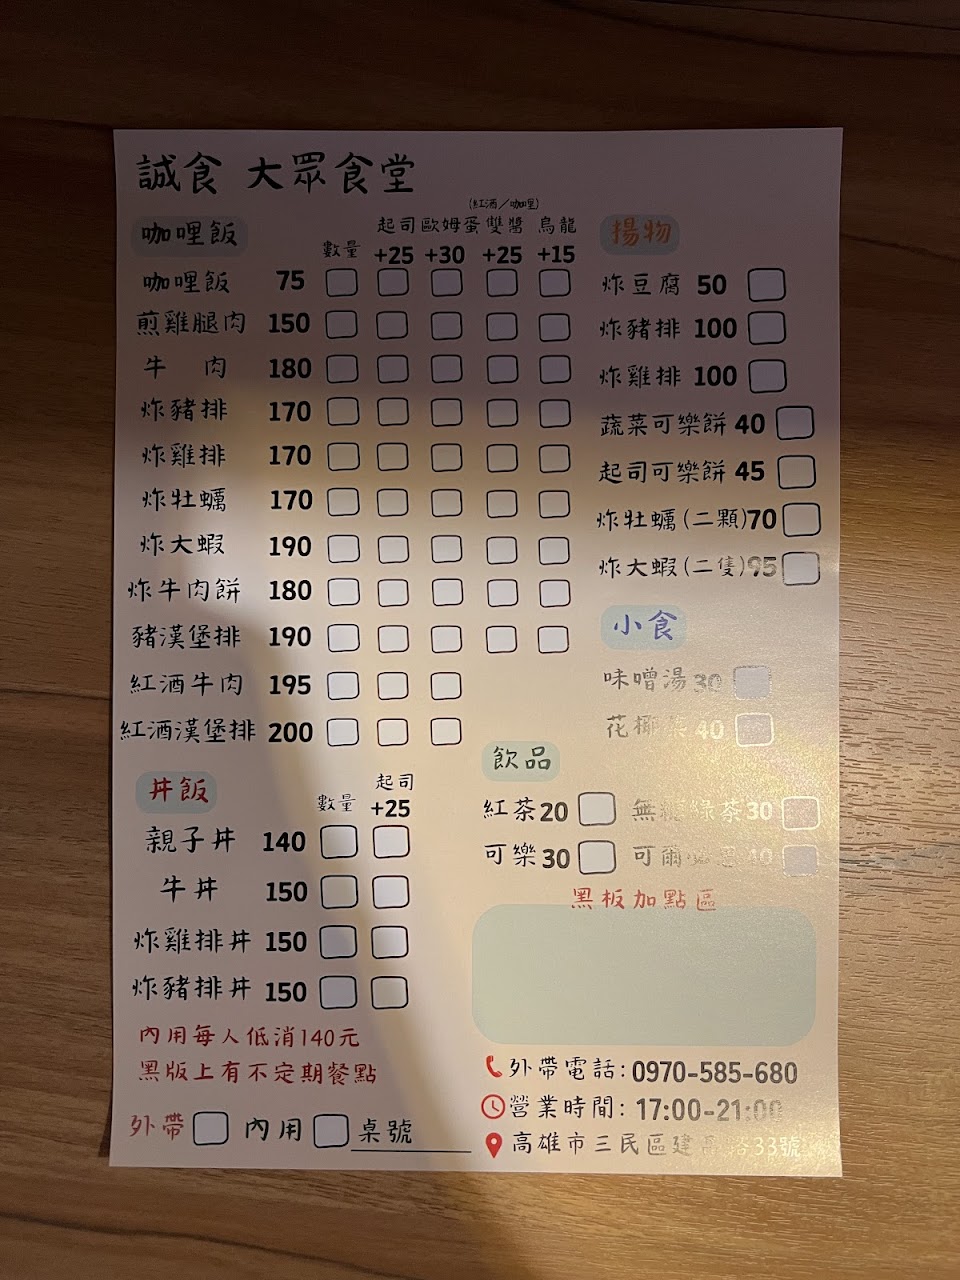 誠食 大眾食堂
咖哩飯
(紅酒/咖哩)
起司 歐姆蛋 雙醬 烏龍
數量 +25 +30 +25 +15
咖哩飯 75
煎雞腿肉 150
牛 肉 180
炸豬排 170
炸雞排 170
炸牡蠣 170
炸大蝦 190
炸牛肉餅 180
豬漢堡排 190
紅酒牛肉 195
紅酒漢堡排 200
丼飯
起司
數量 +25
親子丼 140
牛丼 150
炸雞排丼 150
炸豬排丼 150
內用每人低消140元
黑版上有不定期餐點
外帶 內用 桌號
揚物
炸豆腐 50
炸豬排 100
炸雞排 100
蔬菜可樂餅 40
起司可樂餅 45
炸牡蠣(二顆)70
炸大蝦(二隻)95
小食
味噌湯 30
花椰菜 40
飲品
紅茶 20 無 綠茶 30
可樂 30 可爾必思 40
黑板加點區
外帶電話:0970-585-680
營業時間:17:00-21:00
高雄市三民區建 路33號